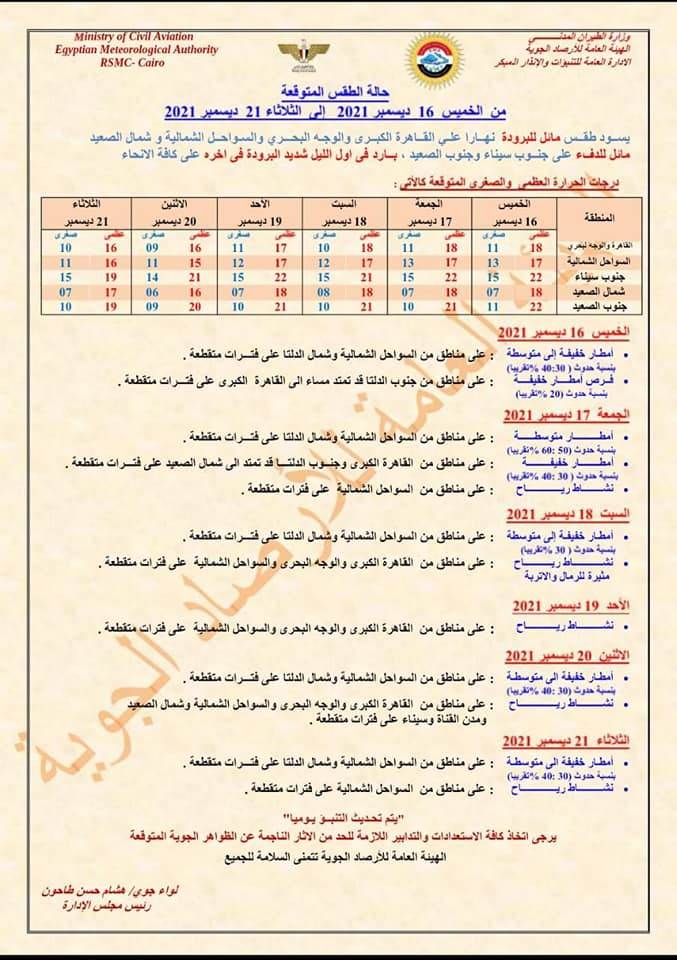 Ministry of Civil Aviation
Egyptian Meteorological Authority
RSMC- Cairo
وزارة الطيران المدنـــي
الهيئة العامة للأرصاد الجوية
الادارة العامة للتنبؤات والإنذار المبكر
حالة الطقس المتوقعة
من الخميس 16 ديسمبر 2021 إلى الثلاثاء 21 ديسمبر 2021
يسـود طقـس مائل للبرودة نهـارا علـي القـاهرة الكبـرى والوجـه البحـري والسواحـل الشمالية و شمال الصعيد
مائل للدفء على جنـوب سيناء وجنوب الصعيد ، بـارد فـى اول الليـل شديد البرودة فى اخره على كافة الانحاء
درجات الحرارة العظمى والصغرى المتوقعة كالأتي:
المنطقة | الخميس 16 ديسمبر | الجمعة 17 ديسمبر | السبت 18 ديسمبر | الأحد 19 ديسمبر | الاثنين 20 ديسمبر | الثلاثاء 21 ديسمبر
عظمى صغرى | عظمى صغرى | عظمى صغرى | عظمى صغرى | عظمى صغرى | عظمى صغرى
القاهرة والوجه لبحري | 18 11 | 18 11 | 18 10 | 17 11 | 16 09 | 16 10
السواحل الشمالية | 17 13 | 17 13 | 17 12 | 17 12 | 15 11 | 16 11
جنوب سيناء | 22 15 | 22 15 | 21 15 | 22 15 | 21 14 | 19 15
شمال الصعيد | 18 07 | 18 07 | 18 08 | 18 07 | 16 06 | 17 07
جنوب الصعيد | 22 11 | 21 10 | 21 10 | 21 10 | 20 09 | 19 10
الخميس 16 ديسمبر 2021
• أمطار خفيفة إلى متوسطة : على مناطق من السواحل الشمالية وشمال الدلتا على فتـرات متقطعة .
بنسبة حدوث (30 :40 %تقريبا)
• فـرص أمطـار خفيفـة : على مناطق من جنوب الدلتا قد تمتد مساء الى القاهرة الكبرى على فتـرات متقطعة .
بنسبة حدوث (20 %تقريبا)
الجمعة 17 ديسمبر 2021
• أمطـــار متوسطـــة : على مناطق من السواحل الشمالية وشمال الدلتا على فتـرات متقطعة .
بنسبة حدوث (50 :60 %تقريبا)
• أمطـــار خفيفـــة : على مناطق من القاهرة الكبرى وجنـوب الدلتـا قد تمتد الى شمال الصعيد على فتـرات متقطعة .
بنسبة حدوث (30 :40 %تقريبا)
• نشـــاط ريـــاح : على مناطق من السواحل الشمالية على فترات متقطعة .
السبت 18 ديسمبر 2021
• أمطار خفيفة إلى متوسطة : على مناطق من السواحل الشمالية وشمال الدلتا على فترات متقطعة .
بنسبة حدوث (30 %تقريبا)
• نشـــاط ريـــاح : على مناطق من القاهرة الكبرى والوجه البحرى والسواحل الشمالية على فترات متقطعة .
مثيرة للرمال والاتربة
الأحد 19 ديسمبر 2021
• نشـــاط ريـــاح : على مناطق من القاهرة الكبرى والوجه البحرى والسواحل الشمالية على فترات متقطعة .
الاثنين 20 ديسمبر 2021
• أمطار خفيفة الى متوسطة : على مناطق من السواحل الشمالية وشمال الدلتا على فتـرات متقطعة .
بنسبة حدوث (30 :40 %تقريبا)
• نشـــاط ريـــاح : على مناطق من القاهرة الكبرى والوجه البحرى والسواحل الشمالية وشمال الصعيد
ومدن القناة وسيناء على فترات متقطعة .
الثلاثاء 21 ديسمبر 2021
• أمطار خفيفة الى متوسطة : على مناطق من السواحل الشمالية وشمال الدلتا على فتـرات متقطعة .
بنسبة حدوث (30 :40 %تقريبا)
• نشـــاط ريـــاح : على مناطق من السواحل الشمالية على فترات متقطعة .
"يتم تحديث التنبؤ يوميا"
يرجى اتخاذ كافة الاستعدادات والتدابير اللازمة للحد من الاثار الناجمة عن الظواهر الجوية المتوقعة
الهيئة العامة للأرصاد الجوية تتمنى السلامة للجميع
لواء جوي/ هشام حسن طاحون
رئيس مجلس الإدارة
الهيئة العامة للأرصاد الجوية